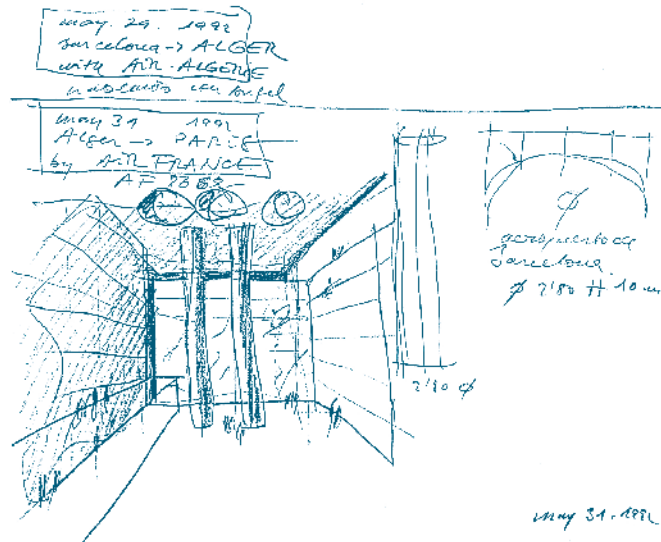 may. 29. 1992
Barcelona -> ALGER
with AIR-ALGERIE
may 31 1992
Alger -> PARIS
by AIR FRANCE
AF
aeropuerto
Barcelona
ø 2'80 H 10 m
2'80 ø
may 31. 1992